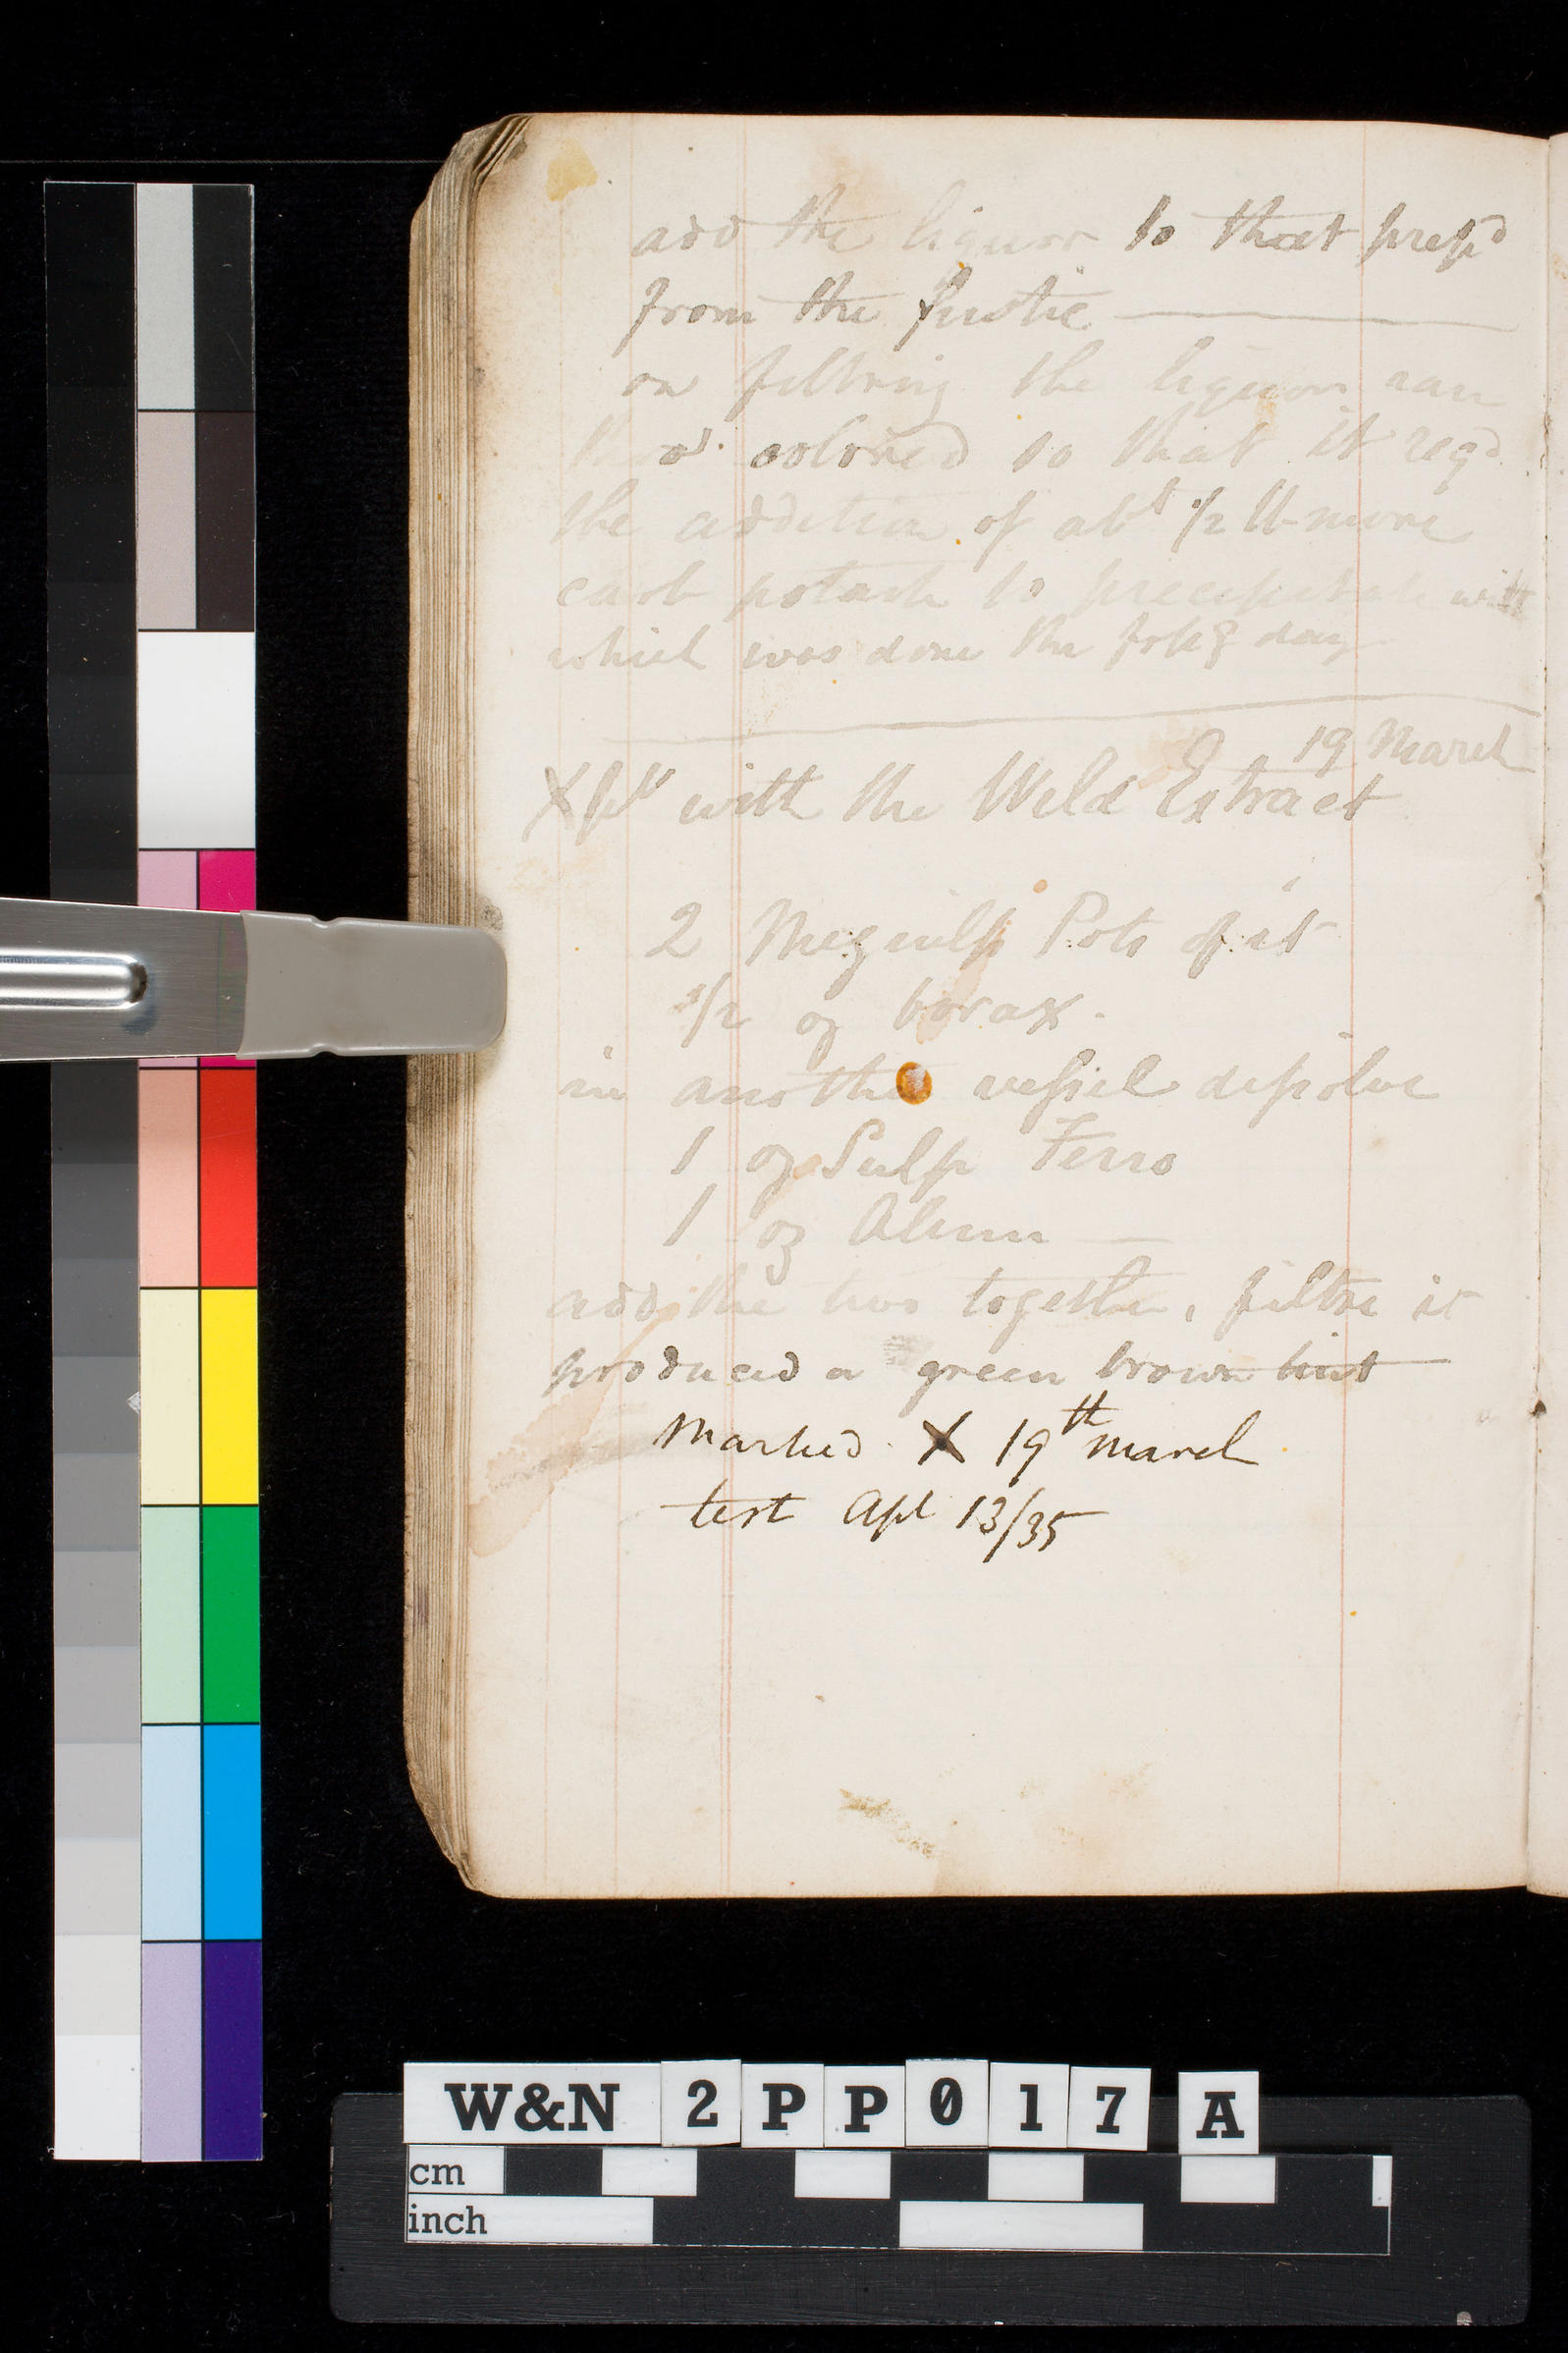 add the liquor to that prepd
from the fustic
on filtring the liquor ran
thro' colored so that it reqd
the addition of abt 1/2 lb more
carb potash to precipitate with
which was done the folg day
19 March
Xpt with the Weld Extract
2 Meguilp Pots of it
1/2 oz borax.
in another vessel dissolve
1 oz Sulp Ferro
1 oz Alum
add the two together, filtre it
produced a green brown tint
Marked X 19th March
test Apl 13/35
W&N 2PP017 A
cm
inch